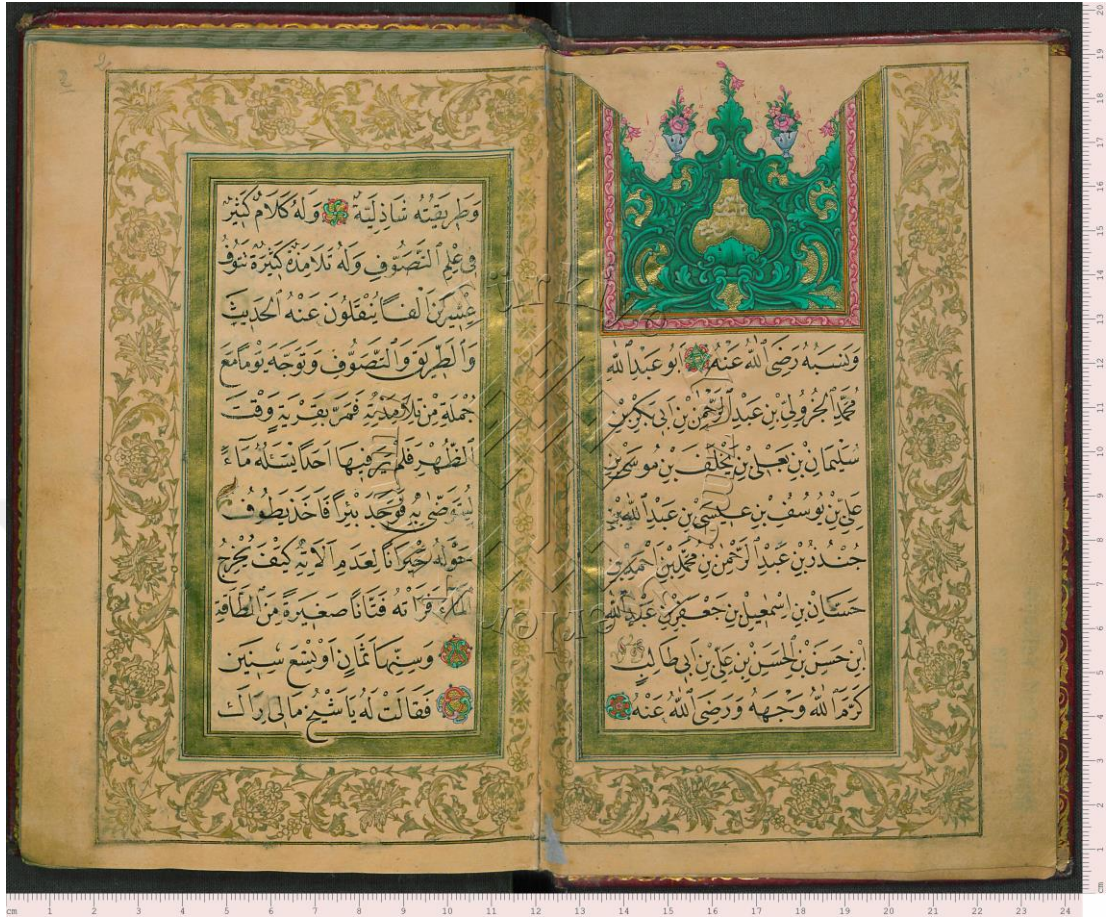 وَنَسَبُهُ رَضَىَ ٱللّٰهُ عَنْهُ اَبُو عَبْدِ ٱللّٰهِ
مُحَمَّدِ ٱلْجُزُولِىِّ بْنِ عَبْدِ ٱلرَّحْمٰنِ بْنِ اَبِى بَكْرِ بْنِ
سُلَيْمَانَ بْنِ يَعْلَى بْنِ يَخْلَفَ بْنِ مُوسَى بْنِ
عَلِىِّ بْنِ يُوسُفَ بْنِ عِيسٰى بْنِ عَبْدِ ٱللّٰهِ بْنِ
جُنْدُدِ بْنِ عَبْدِ ٱلرَّحْمٰنِ بْنِ مُحَمَّدِ بْنِ اَحْمَدَ بْنِ
حَسَّانِ بْنِ اِسْمٰعِيلَ بْنِ جَعْفَرِ بْنِ عَبْدِ ٱللّٰهِ
ابْنِ حَسَنِ بْنِ ٱلْحَسَنِ بْنِ عَلِىِّ بْنِ اَبِى طَالِبٍ
كَرَّمَ ٱللّٰهُ وَجْهَهُ وَرَضَىَ ٱللّٰهُ عَنْهُ
وَطَرِيقَتُهُ شَاذِلِيَّةٌ وَلَهُ كَلَامٌ كَثِيرٌ
فِى عِلْمِ ٱلتَّصَوُّفِ وَلَهُ تَلَامَذَةٌ كَثِيرَةٌ تَنُوفُ
عِشْرِينَ اَلْفًا يُنْقَلُونَ عَنْهُ ٱلْحَدِيثَ
وَٱلطَّرِيقَ وَٱلتَّصَوُّفِ وَتَوَجَّهَ يَوْمًا مَعَ
جُمْلَةٍ مِنْ تَلَامِذَتِهِ فَمَرَّ بِقَرْيَةٍ وَقْتَ
ٱلظُّهْرِ فَلَمْ يَرَ فِيهَا اَحَدًا يَسْئَلُهُ مَآءً
لِيَتَوَضَّى بِهِ فَوَجَدَ بِئْرًا فَاَخَذَ يَطُوفُ
حَوْلَهُ حَيْرَانًا لِعَدَمِ اٰلَاتِهِ كَيْفَ يُخْرِجُ
ٱلْمَاءَ فَرَاَتْهُ فَتَاتًا صَغِيرَةً مِنَ ٱلطَّاقَةِ
وَسِنُّهَا ثَمَانٍ اَوْ تِسْعَ سِنِينَ
فَقَالَتْ لَهُ يَا شَيْخُ مَالِى اَرَاكَ